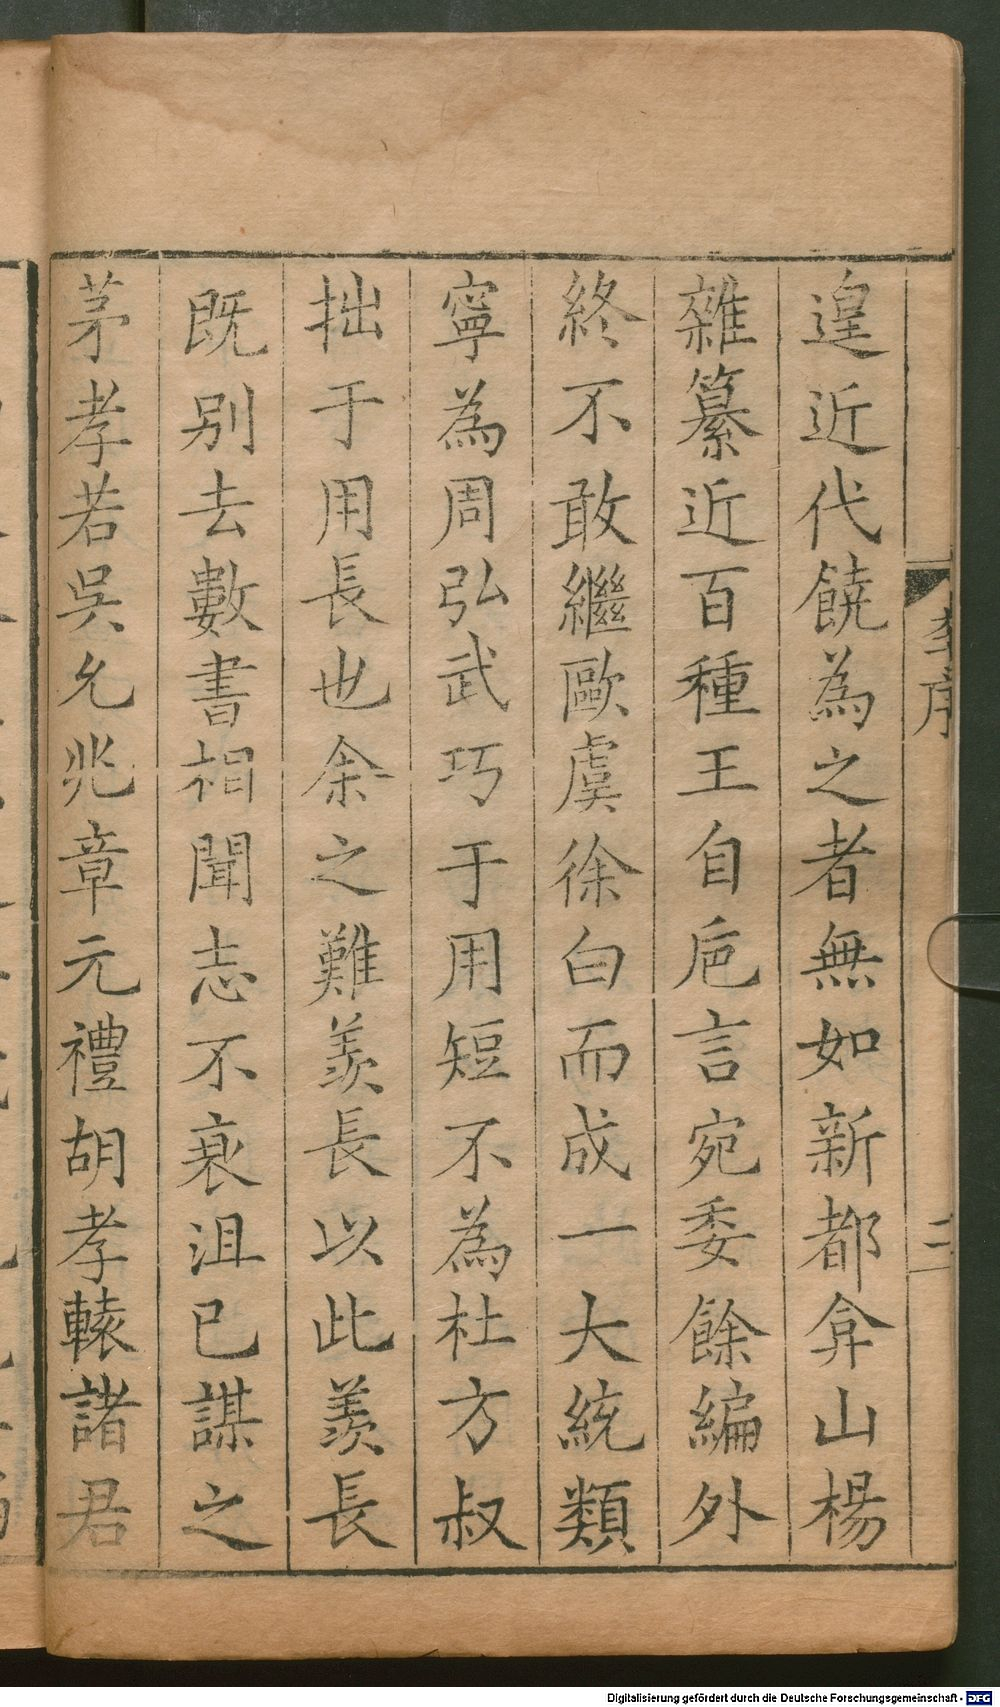 遑近代饒為之者無如新都弇山楊
雜纂近百種王自巵言宛委餘編外
終不敢繼歐虞徐白而成一大統類
寧為周弘武巧于用短不為杜方叔
拙于用長也余之難羨長以此羨長
既别去數書相聞志不衰沮已謀之
茅孝若吳允兆章元禮胡孝轅諸君
Digitalisierung gefördert durch die Deutsche Forschungsgemeinschaft - DFG